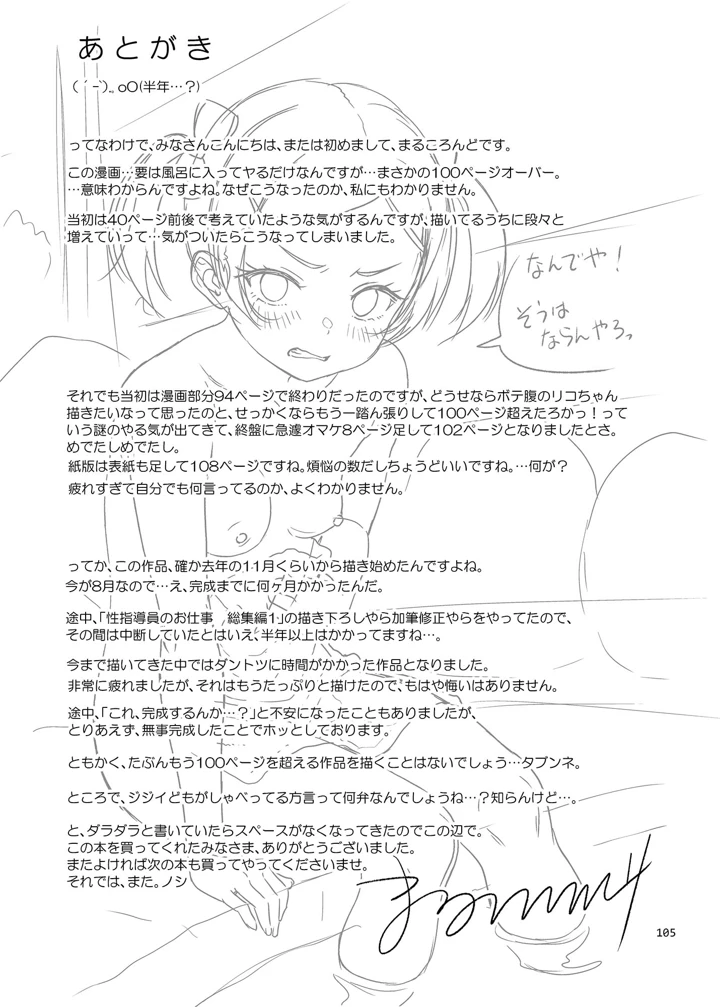 あとがき
( ´ -`)｡oO(半年…？)
ってなわけで､みなさんこんにちは､または初めまして､まるころんどです。
この漫画…要は風呂に入ってヤるだけなんですが…まさかの100ページオーバー。
…意味わからんですよね｡なぜこうなったのか､私にもわかりません。
当初は40ページ前後で考えていたような気がするんですが､描いてるうちに段々と
増えていって…気がついたらこうなってしまいました。
なんでや！
そうは
ならんやろっ
それでも当初は漫画部分94ページで終わりだったのですが､どうせならボテ腹のリコちゃん
描きたいなって思ったのと､せっかくならもう一踏ん張りして100ページ超えたろかっ！って
いう謎のやる気が出てきて､終盤に急遽オマケ8ページ足して102ページとなりましたとさ。
めでたしめでたし。
紙版は表紙も足して108ページですね｡煩悩の数だしちょうどいいですね｡…何が？
疲れすぎて自分でも何言ってるのか､よくわかりません。
ってか､この作品､確か去年の11月くらいから描き始めたんですよね。
今が8月なので…え､完成までに何ヶ月かかったんだ。
途中､｢性指導員のお仕事　総集編1｣の描き下ろしやら加筆修正やらをやってたので､
その間は中断していたとはいえ､半年以上はかかってますね…。
今まで描いてきた中ではダントツに時間がかかった作品となりました。
非常に疲れましたが､それはもうたっぷりと描けたので､もはや悔いはありません。
途中､｢これ､完成するんか…？｣と不安になったこともありましたが､
とりあえず､無事完成したことでホッとしております。
ともかく､たぶんもう100ページを超える作品を描くことはないでしょう…タブンネ。
ところで､ジジイどもがしゃべってる方言って何弁なんでしょうね…？知らんけど…。
と､ダラダラと書いていたらスペースがなくなってきたのでこの辺で。
この本を買ってくれたみなさま､ありがとうございました。
またよければ次の本も買ってやってくださいませ。
それでは､また｡ノシ
105